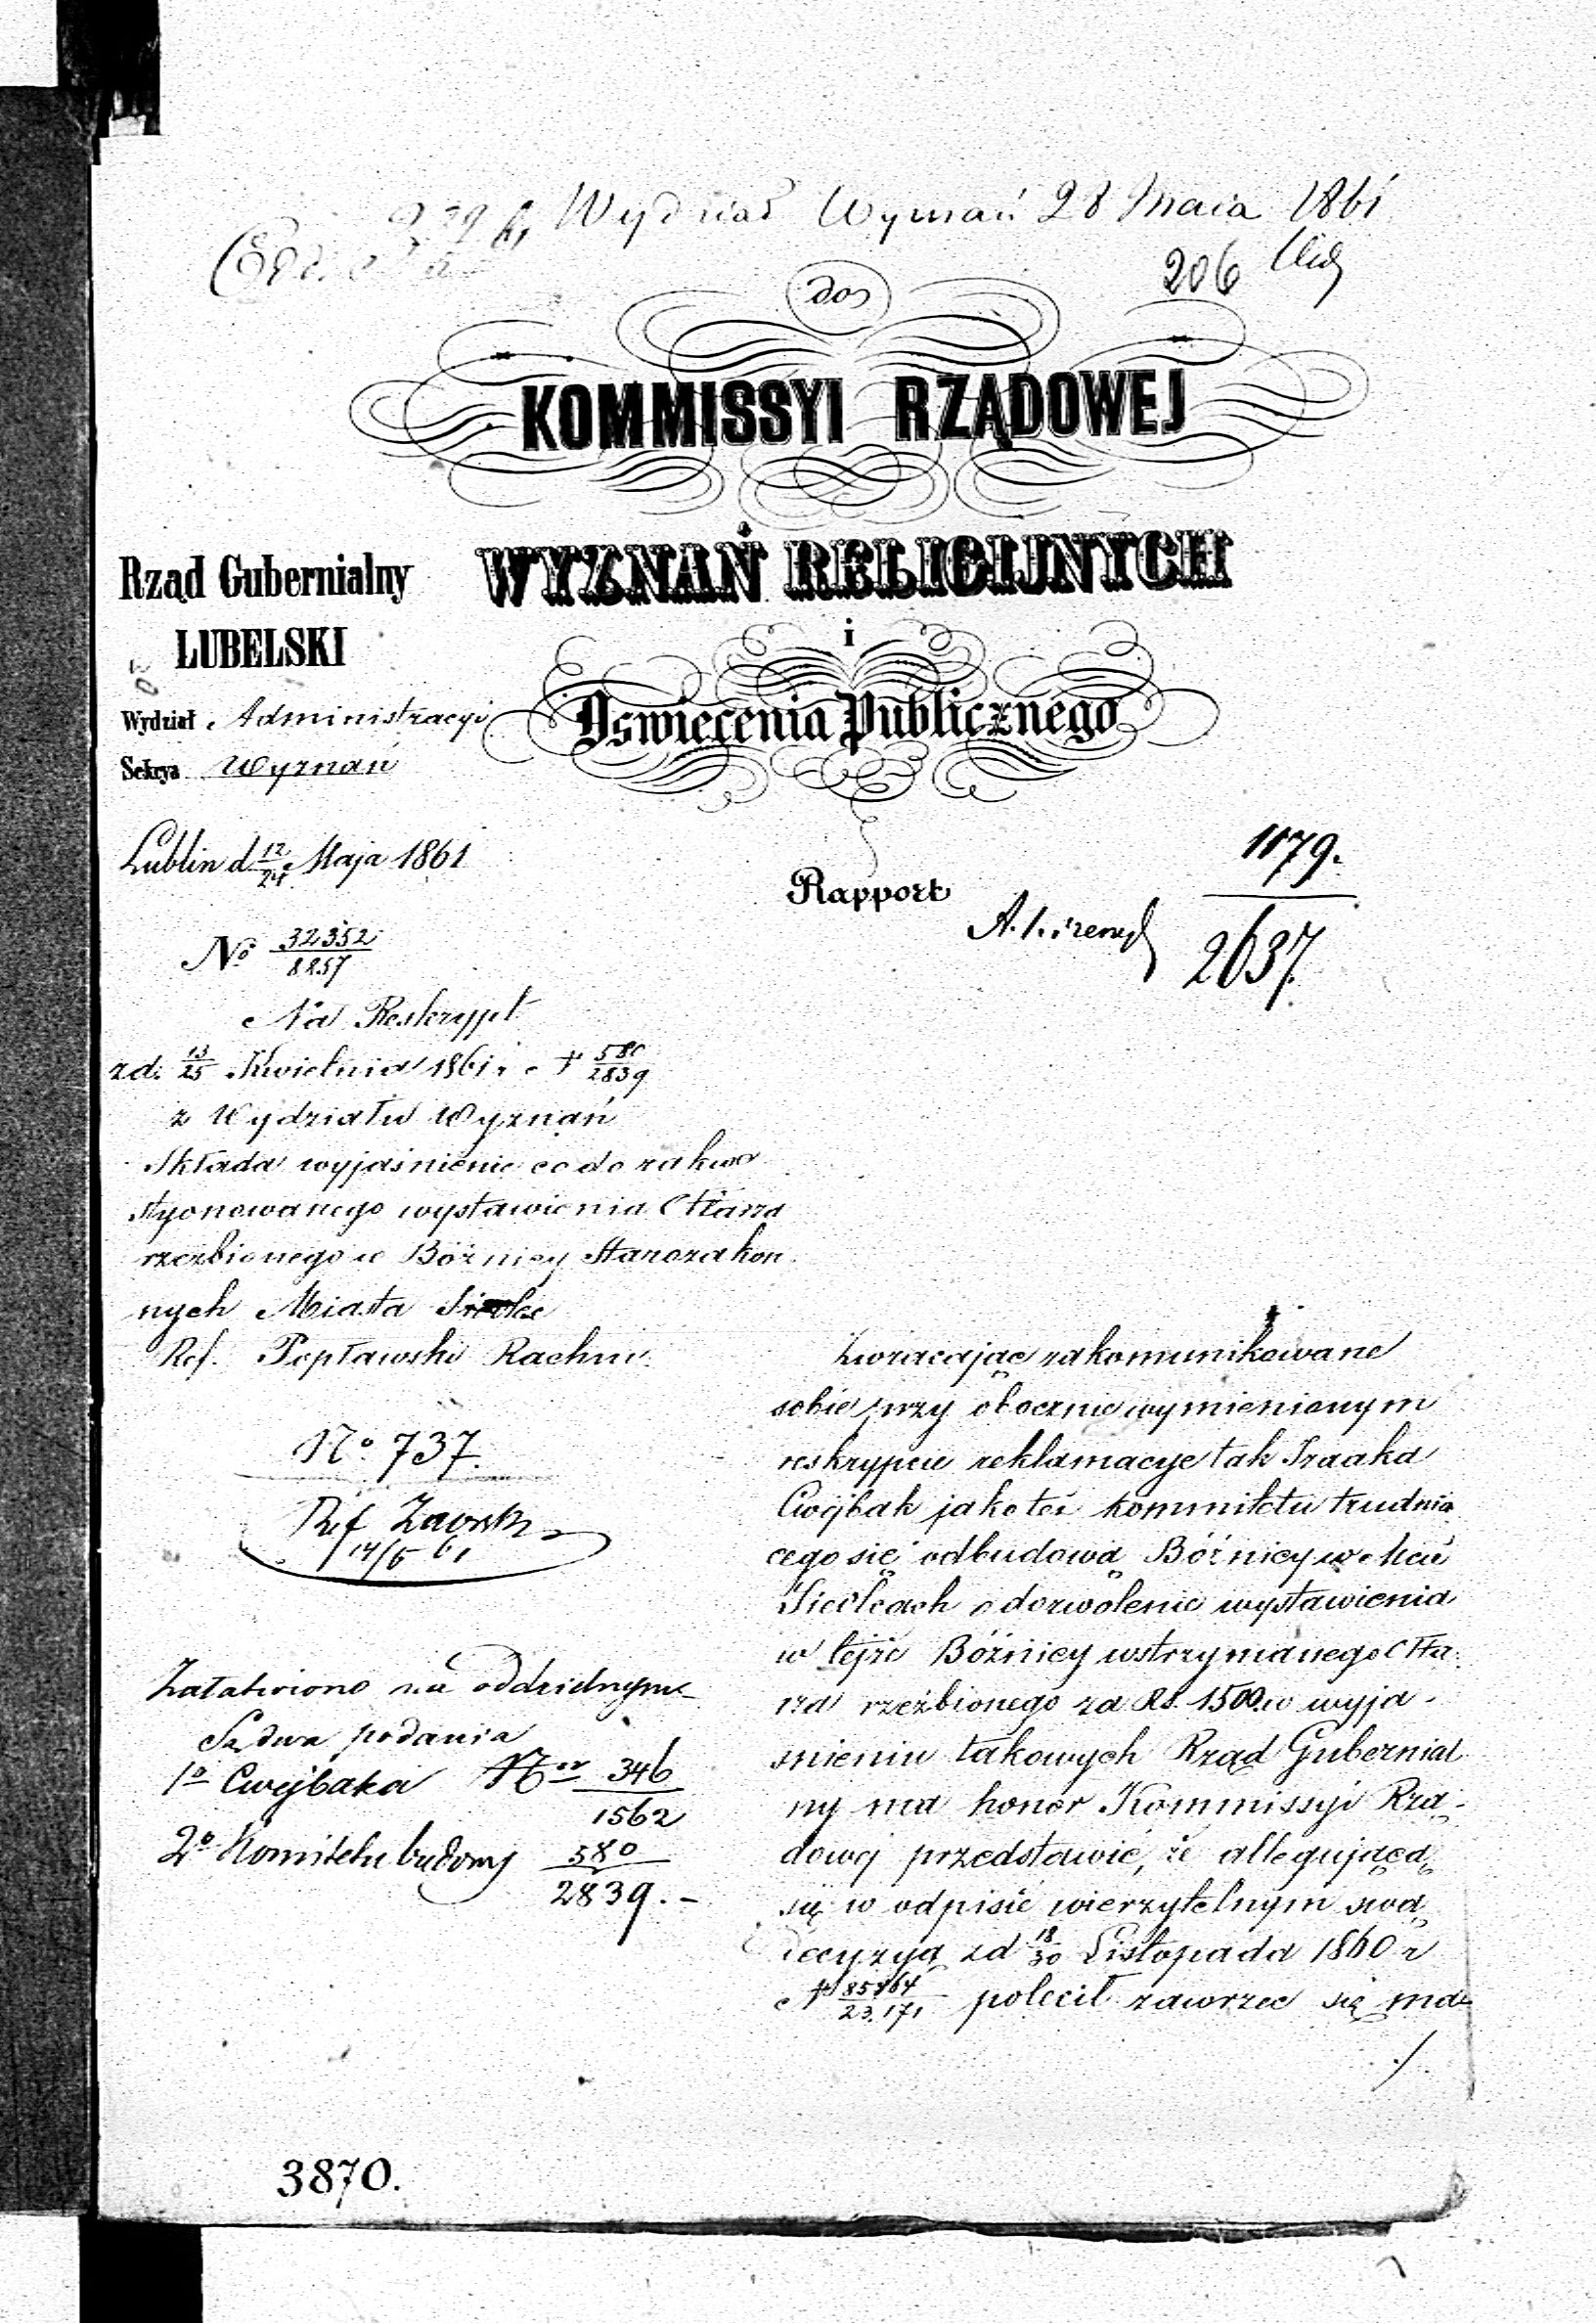 Wydział Wyznań 28 Maia 1861
206
do
KOMMISSYI RZĄDOWEJ
WYZNAŃ RELIGIJNYCH
i
Oświecenia Publicznego
Rząd Gubernialny
LUBELSKI
Wydział Administracyi
Sekcya Wyznań
Lublin d 12/24 Maja 1861
Rapport
1179.
2637.
No 32352/8257
Na Reskrypt
z d. 13/25 Kwietnia 1861 r. N 580/2839
z Wydziału Wyznań
Składa wyjaśnienie co do zakwe
styonowanego wystawienia Ołtarza
rzeźbionego w Bóżnicy Starozakon
nych Miasta Siedlec
Ref. Popławski Rachm.
No. 737.
Ref
14/6 61
Załatwiono na oddzielnym
Są dwa podania
1o Cwejbaka Nr 346/1562
2o Komitetu budowy 580/2839.-
Zwracając zakomunikowane
sobie przy obocznie wymienionym
reskrypcie reklamacye tak Izaaka
Cwejbak jako też kommitetu trudnią
cego się odbudową Bóżnicy w Mcie
Siedlcach o dozwolenie wystawienia
w tejże Bóźnicy wstrzymanego Ołta
rza rzeźbionego za Rs. 1500. w wyja-
śnieniu takowych Rząd Gubernial
ny ma honor Kommissyi Rzą-
dowej przedstawić, że allegującą
się w odpisie wierzytelnym swą
decyzyą z d 18/30 Listopada 1860 r
N 85864/23.171 polecił zawrzeć się ma
./.
3870.